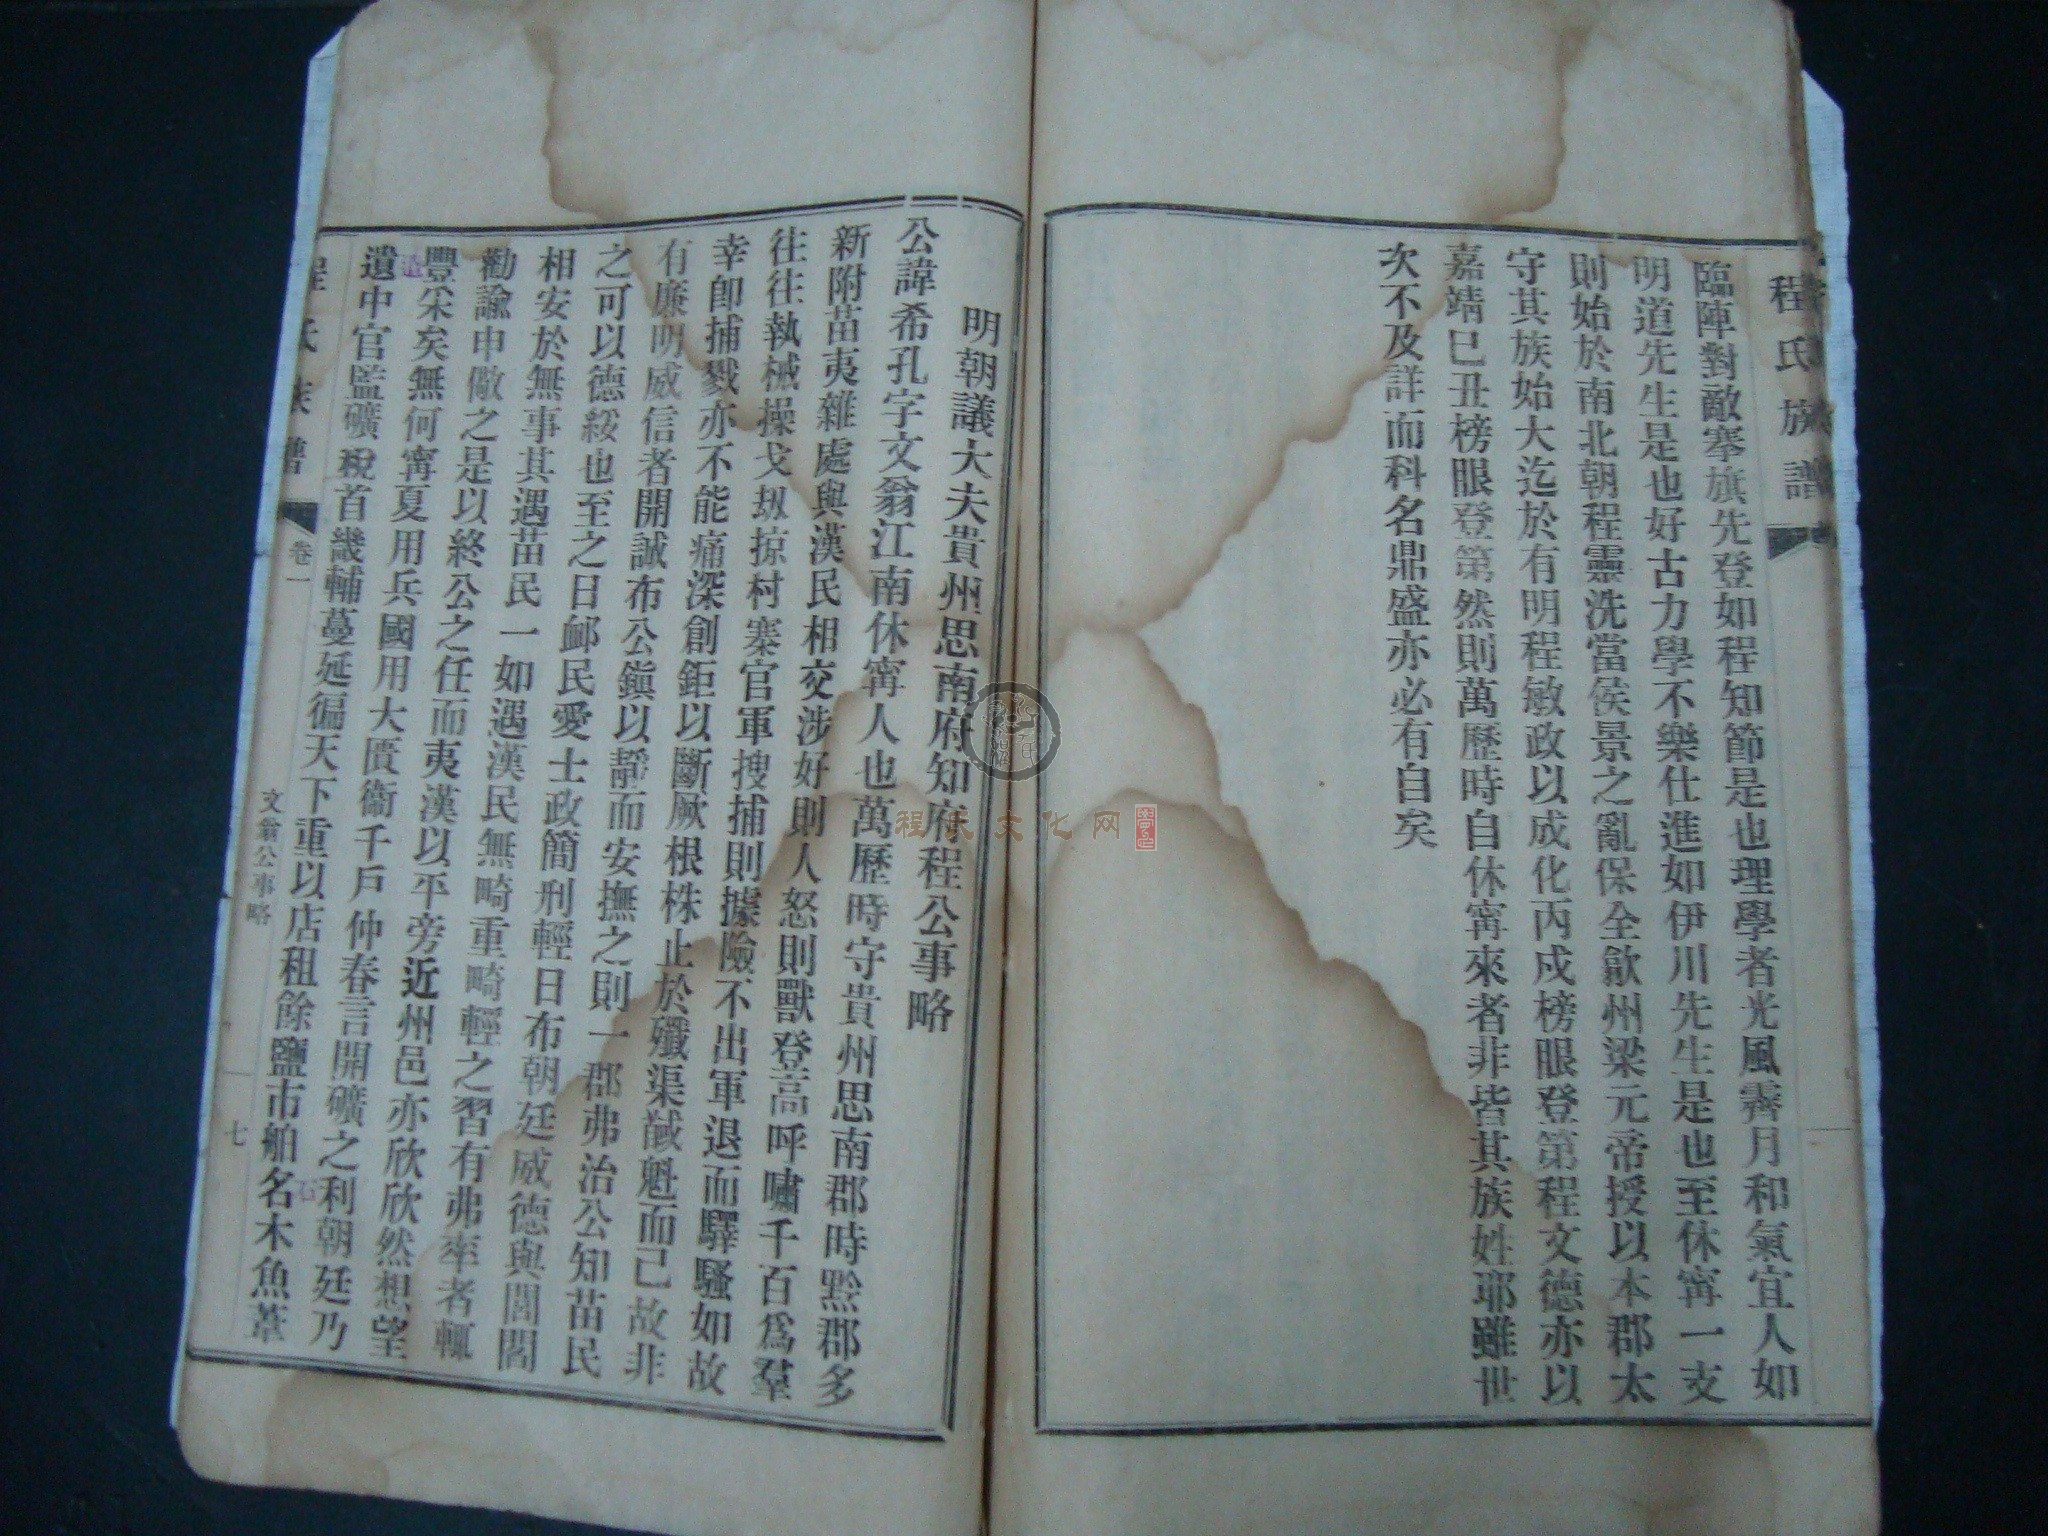 程氏族譜
臨陣對敵搴旗先登如程知節是也理學者光風霽月和氣宜人如
明道先生是也好古力學不樂仕進如伊川先生是也至休甯一支
則始於南北朝程靈洗當侯景之亂保全歙州梁元帝授以本郡太
守其族始大迄於有明程敏政以成化丙戍榜眼登第程文德亦以
嘉靖巳丑榜眼登第然則萬歷時自休甯來者非皆其族姓耶雖世
次不及詳而科名鼎盛亦必有自矣
明朝議大夫貴州思南府知府程公事略
公諱希孔字文翁江南休甯人也萬歷時守貴州思南郡時黔郡多
新附苗夷雜處與漢民相交涉好則人怒則獸登高呼嘯千百爲羣
往往執械操戈刼掠村寨官軍搜捕則據險不出軍退而驛騷如故
幸卽捕戮亦不能痛深創鉅以斷厥根株止於殲渠馘魁而已故非
有廉明威信者開誠布公鎭以靜而安撫之則一郡弗治公知苗民
之可以德綏也至之日邮民愛士政簡刑輕日布朝廷威德與閭閻
相安於無事其遇苗民一如遇漢民無畸重畸輕之習有弗率者輒
勸諭申儆之是以終公之任而夷漢以平旁近州邑亦欣欣然想望
豐采矣無何甯夏用兵國用大匱衞千戶仲春言開礦之利朝廷乃
遺中官監礦稅首畿輔蔓延徧天下重以店租餘鹽市舶名木魚葦
遣
石
程氏族譜
卷一
文翁公事略
七
程氏文化网